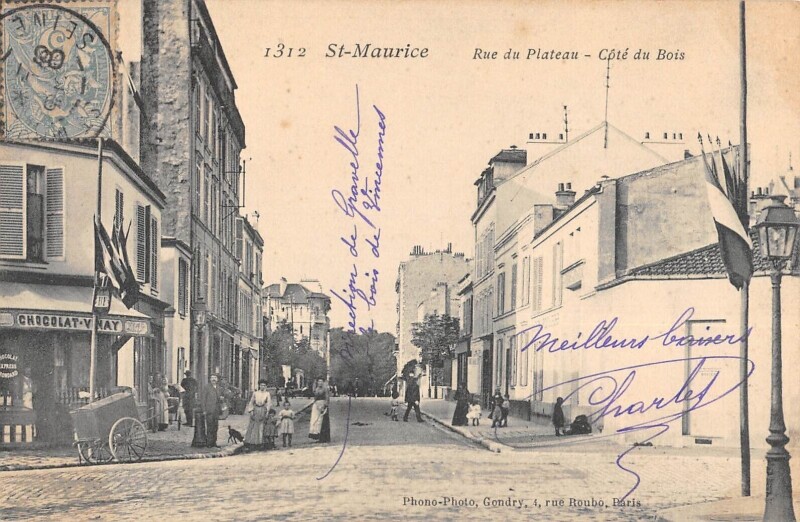 1312 St-Maurice Rue du Plateau - Côté du Bois
SEINE
CHOCOLAT-VINAY
CHOCOLAT
direction de Gravelle
bois de Vincennes
Meilleurs baisers
Charles
Phono-Photo, Gondry, 4, rue Roubo, Paris